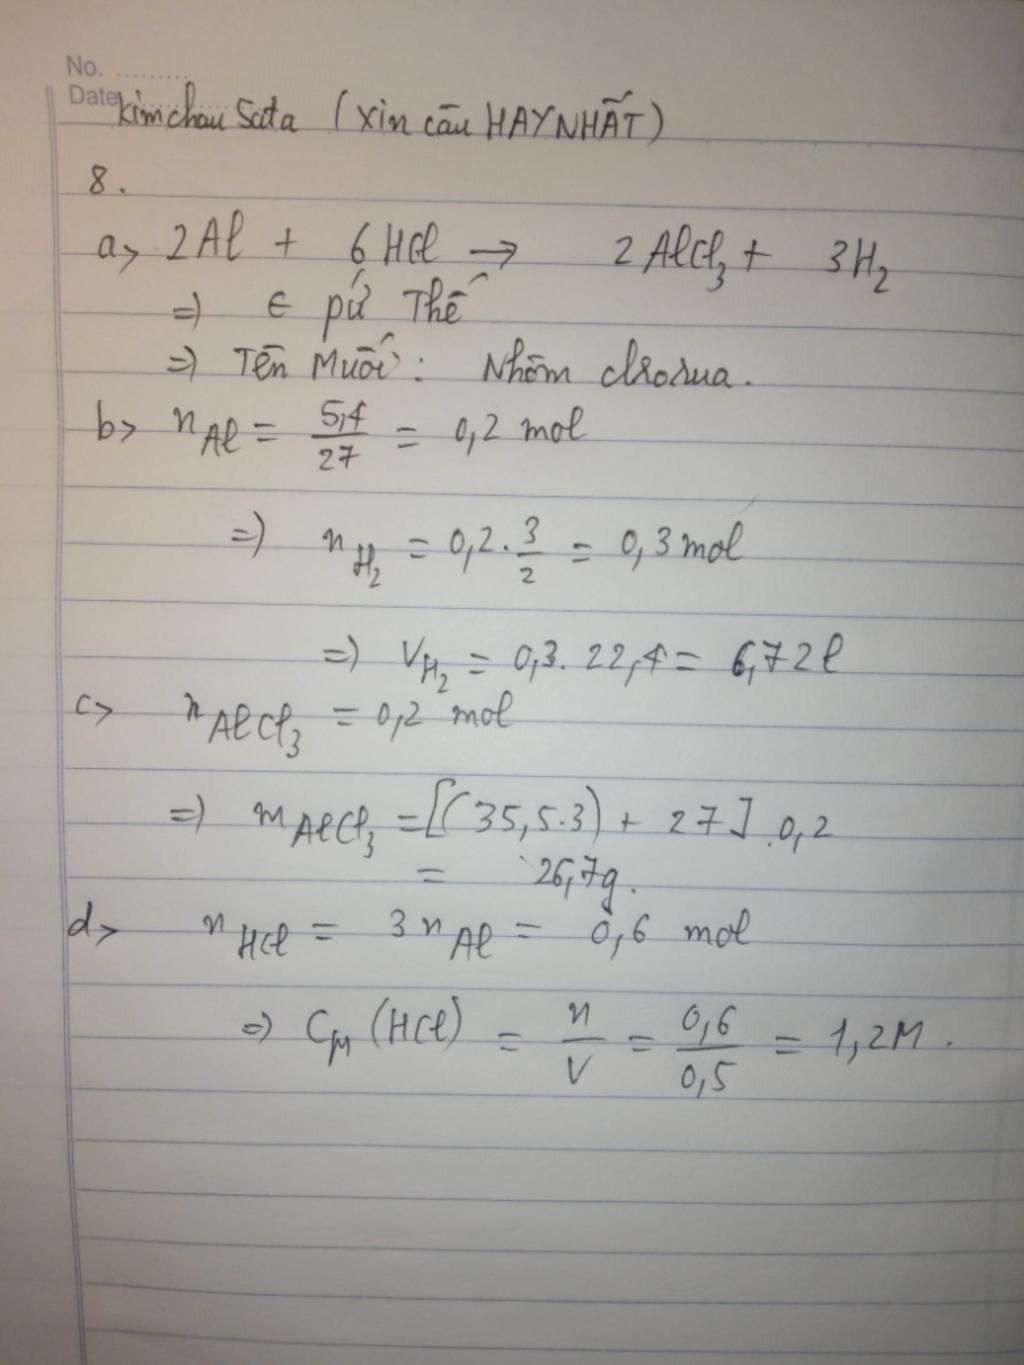 No. ..........
Date kimchau Sata (xin câu HAY NHẤT)
8.
a> 2Al + 6HCl → 2AlCl₃ + 3H₂
=> ∈ pứ Thế
=> Tên Muối: Nhôm clrorua.
b> n_Al = 5,4/27 = 0,2 mol
=> n_H₂ = 0,2 . 3/2 = 0,3 mol
=> V_H₂ = 0,3. 22,4 = 6,72 l
c> n_AlCl₃ = 0,2 mol
=> m_AlCl₃ = [(35,5.3) + 27] . 0,2
= 26,7g.
d> n_HCl = 3 n_Al = 0,6 mol
=> C_M (HCl) = n/V = 0,6/0,5 = 1,2M.